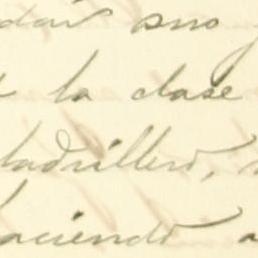 dar sus
la clase
ladrillero,
haciendo a